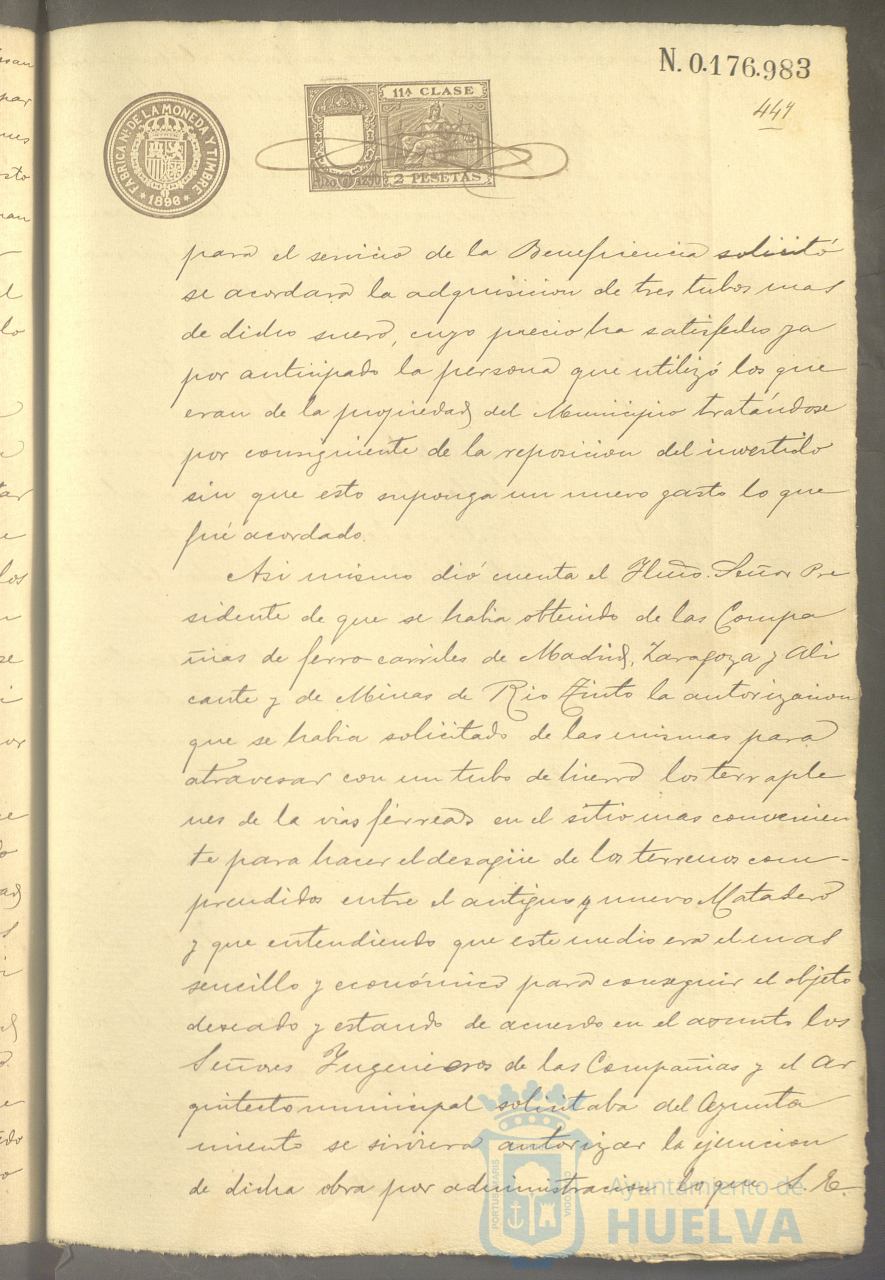 N. 0.176.983
444
FÁBRICA Nal. DE LA MONEDA Y TIMBRE
1896
11ª CLASE
2 PESETAS
para el servicio de la Beneficiencia solicitó
se acordara la adquisicion de tres tubos mas
de dicho suero, cuyo precio ha satisfecho ya
por anticipado la persona que utilizó los que
eran de la propiedad del Municipio tratándose
por consiguiente de la reposicion del invertido
sin que esto suponga un nuevo gasto lo que
fué acordado.
Asi mismo dió cuenta el Iltmo. Señor Pre
sidente de que se habia obtenido de las Compa
ñias de ferro-carriles de Madrid, Zaragoza y Ali
cante y de Minas de Rio Tinto la autorizacion
que se habia solicitado de las mismas para
atravesar con un tubo de hierro los terraple
nes de la vias férreas en el sitio mas convenien
te para hacer el desagüe de los terrenos com-
prendidos entre el antiguo y nuevo Matadero
y que entendiendo que este medio era el mas
sencillo y económico para conseguir el objeto
deseado y estando de acuerdo en el asunto los
Señores Ingenieros de las Compañias y el Ar
quitecto municipal solicitaba del Ayunta
miento se sirviera autorizar la ejecucion
de dicha obra por administracion lo que S. E.
PORTUS MARIS
Ayuntamiento de
HUELVA